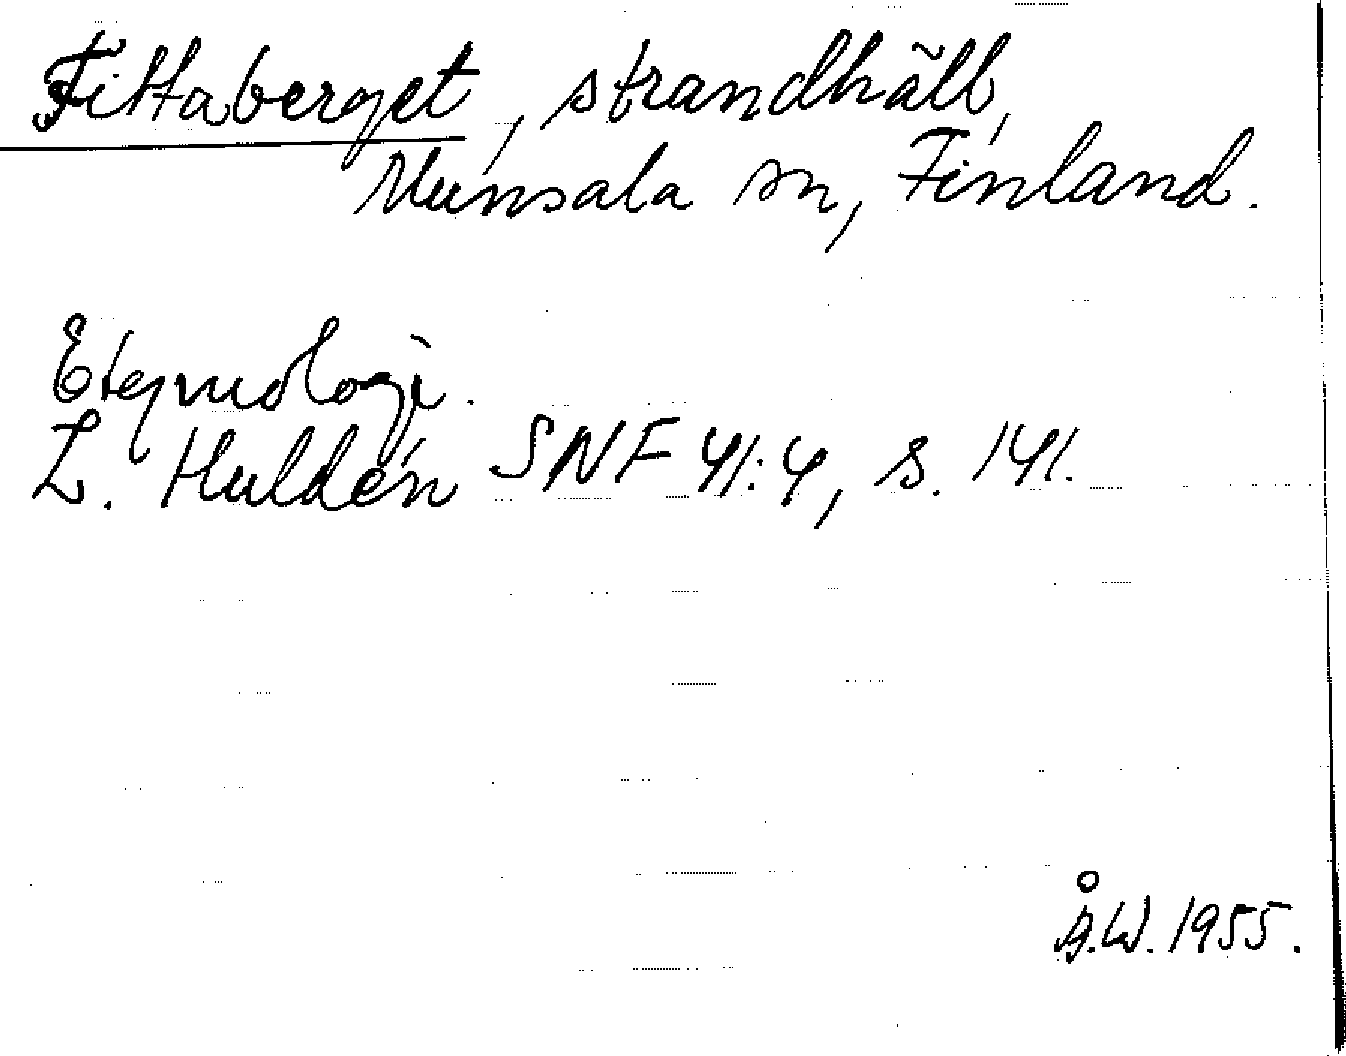 Fittaberget, strandhäll,
Munsala sn, Finland.
Etymologi.
L. Huldén SNF 41:4, s. 141.
Å.W. 1955.